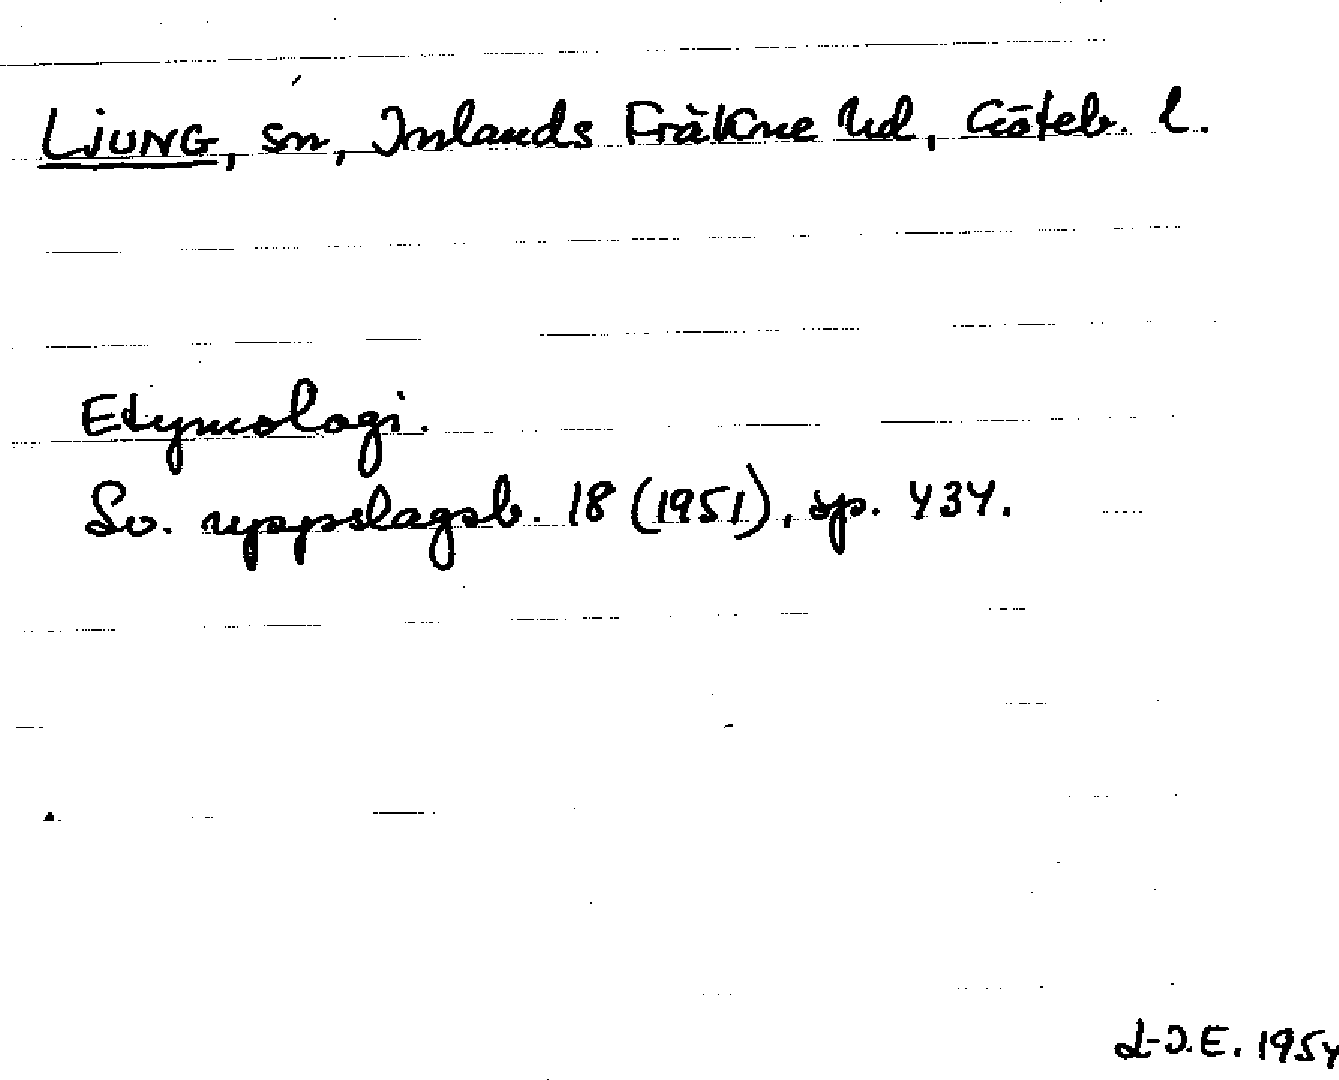 LJUNG, sn, Inlands Fräkne hd, Göteb. l.
Etymologi.
Sv. uppslagsb. 18 (1951), sp. 434.
L-J.E. 1954